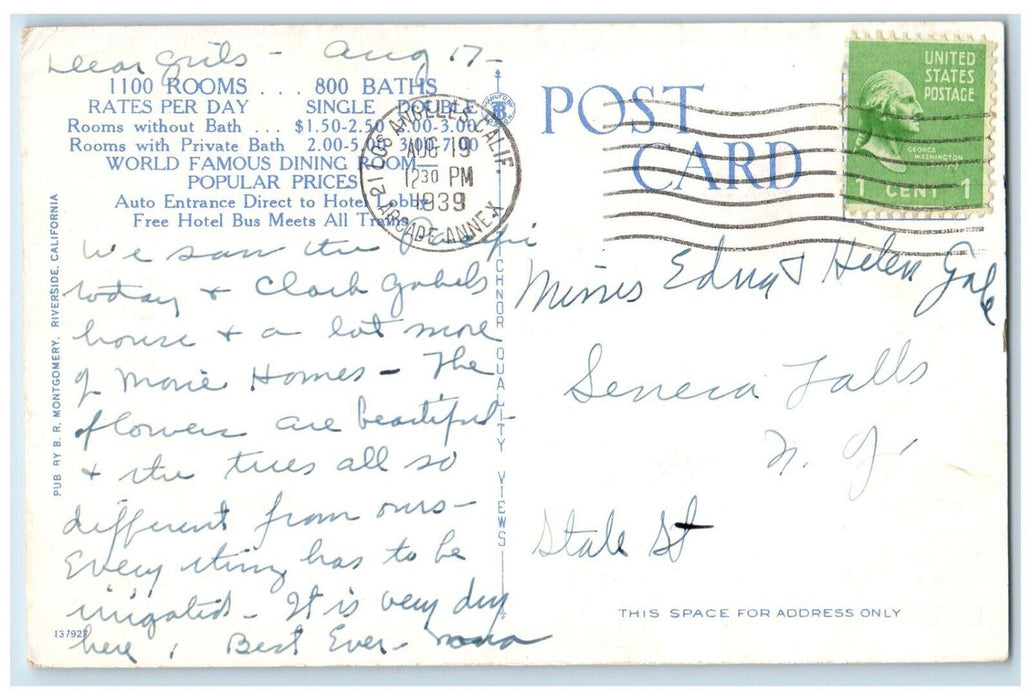 Dear Girls - Aug 17 -
1100 ROOMS . . . 800 BATHS
RATES PER DAY SINGLE DOUBLE
Rooms without Bath . . . $1.50-2.50 2.00-3.00
Rooms with Private Bath 2.00-5.00 3.00-7.00
WORLD FAMOUS DINING ROOM—
POPULAR PRICES
Auto Entrance Direct to Hotel Lobby
Free Hotel Bus Meets All Trains
We saw the Pacific
today & Clark Gabels
house & a lot more
of Movie Homes - The
flowers are beautiful -
& the trees all so
different from ours -
Every thing has to be
irrigated - It is very dry
here , Best Ever -
137927
PUB BY B. R. MONTGOMERY, RIVERSIDE, CALIFORNIA
TICHNOR QUALITY VIEWS
POST
CARD
LOS ANGELES, CALIF.
AUG 19
12 30 PM
1939
ARCADE ANNEX
UNITED
STATES
POSTAGE
GEORGE
WASHINGTON
1 CENT 1
Misses Edna & Helen Gale
Seneca Falls
N. Y.
State St
THIS SPACE FOR ADDRESS ONLY